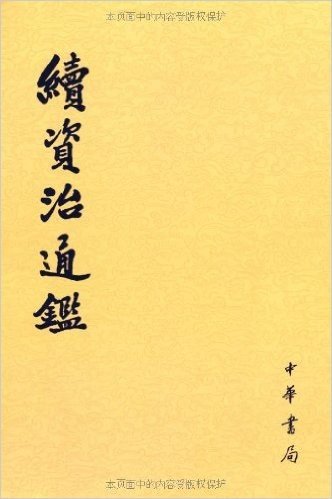 本页面中的内容受版权保护
續資治通鑑
中華書局
本页面中的内容受版权保护